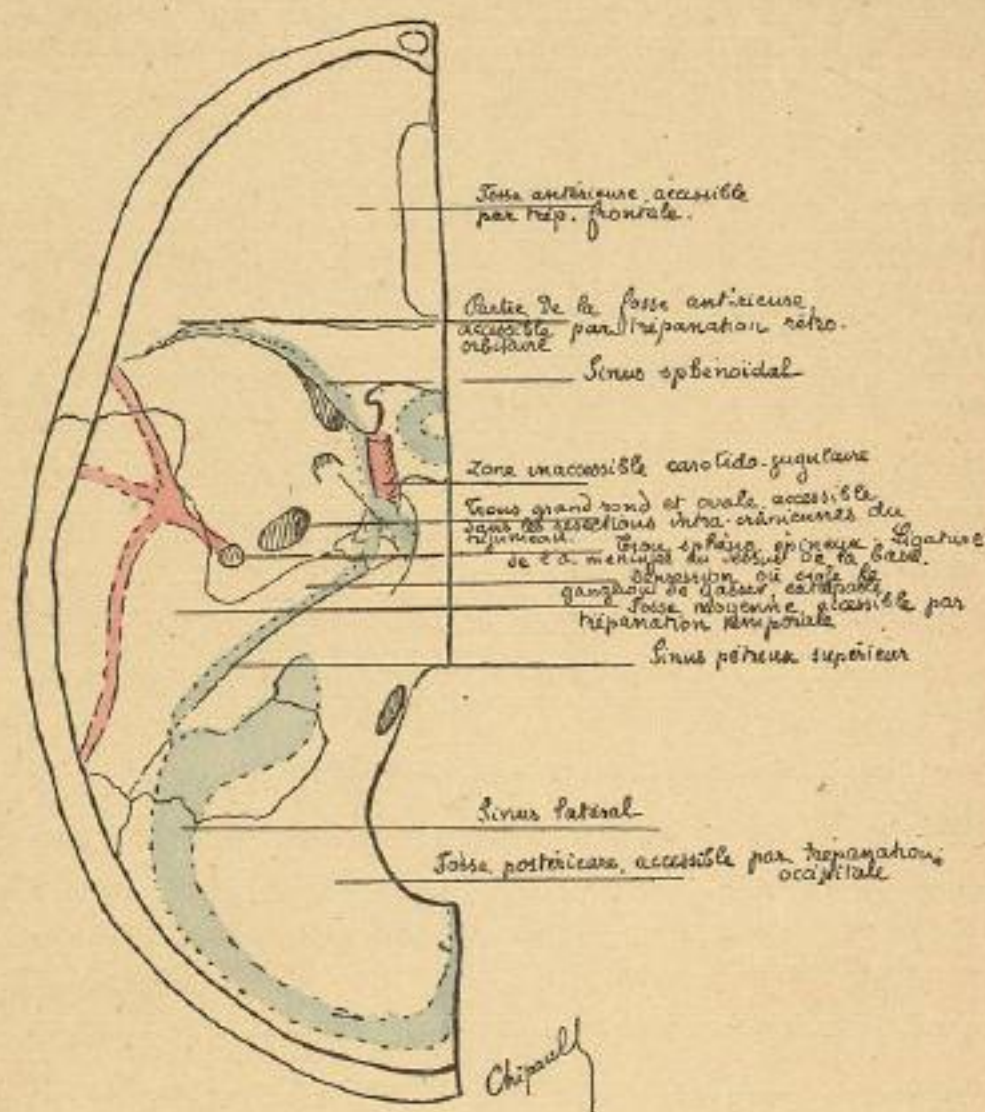 Fosse antérieure, accessible
par trép. frontale.
Partie de la fosse antérieure,
accessible par trépanation rétro-
orbitaire
Sinus sphénoïdal
Zone inaccessible carotido-jugulaire
Trous grand rond et ovale, accessible
dans les résections intra-crâniennes du
trijumeau.
Trou sphéno-épineux. Ligature
de l'a. méningée au niveau de la base.
Dépression où siège le
ganglion de Gasser, extirpable
Fosse moyenne, accessible par
trépanation temporale
Sinus pétreux supérieur
Sinus latéral
Fosse postérieure, accessible par trépanation
occipitale
Chipault